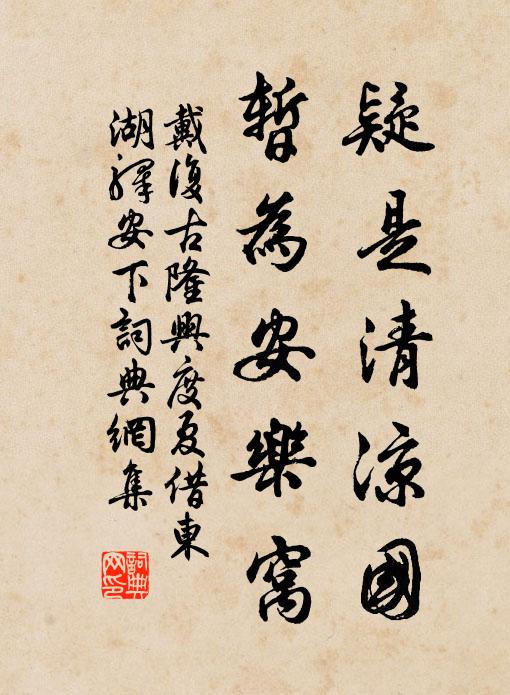 疑是清涼國
暫為安樂窩
戴復古隆興度夏借東
湖驛安下詞典網集
詞典網印